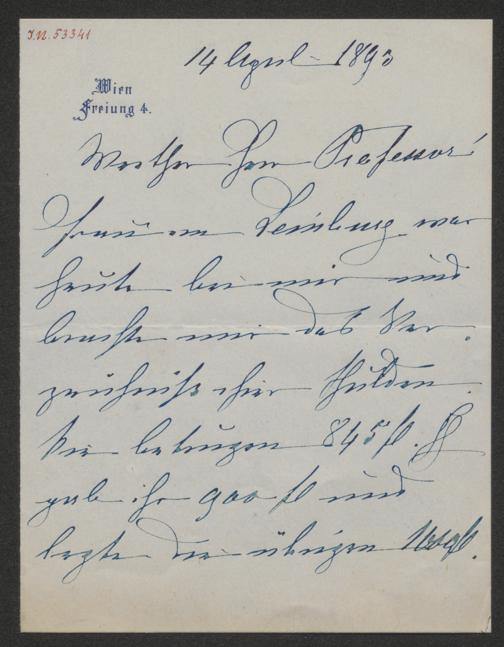 J.N. 53341
14 April 1893
Wien
Freiung 4.
Werther Herr Professor!
Frau von Leinburg war
heute bei mir und
brachte mir das Ver-
zeichniß ihrer Schulden.
Sie betrugen 845 fl. Ich
gab ihr 900 fl und
legte die übrigen